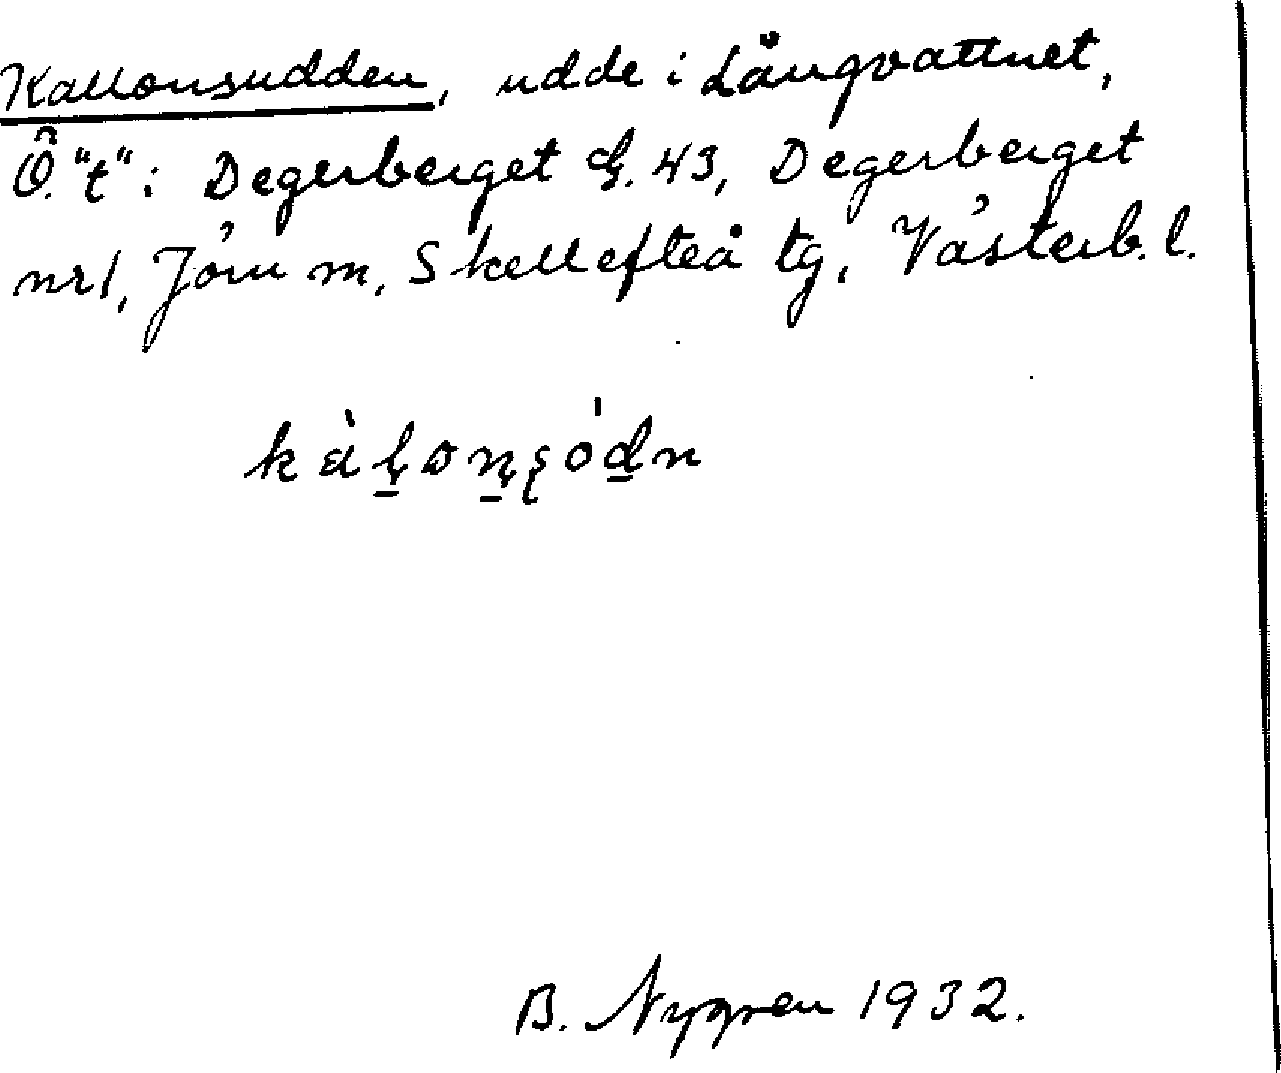 Kallonsudden, udde i Långvattnet,
Ö. "t" i Degerberget G. 43, Degerberget
nr 1, Jörn m, Skellefteå tg, Västerb. l.
B. Nygren 1932.